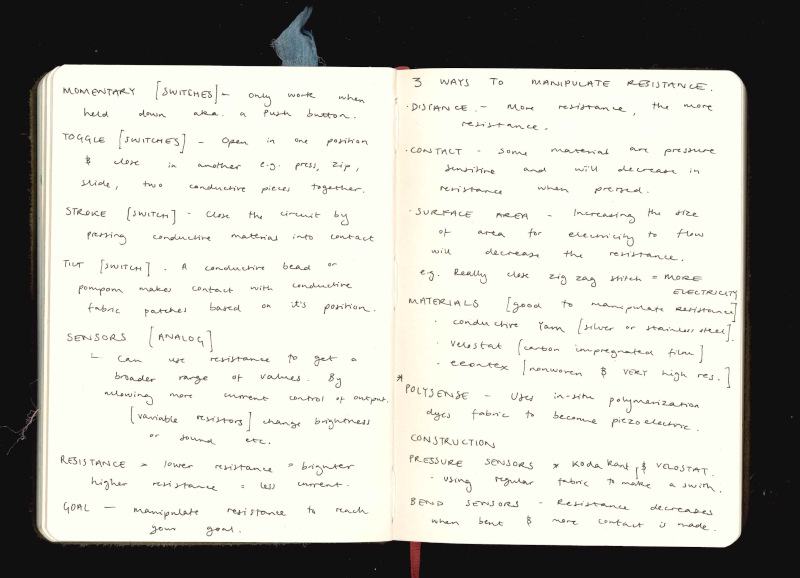 MOMENTARY [SWITCHES] - only work when
held down aka. a push button.
TOGGLE [SWITCHES] - Open in one position
& close in another e.g. press, zip,
slide, two conductive pieces together.
STROKE [SWITCH] - Close the circuit by
pressing conductive material into contact
TILT [SWITCH]. A conductive bead or
pompom makes contact with conductive
fabric patches based on it's position.
SENSORS [ANALOG]
Can use resistance to get a
broader range of values. By
allowing more current control of output.
[variable resistors] change brightness
or sound etc.
RESISTANCE * lower resistance = brighter
higher resistance = less current.
GOAL - manipulate resistance to reach
your goal.
3 WAYS TO MANIPULATE RESISTANCE.
· DISTANCE - More resistance, the more
resistance.
· CONTACT - Some material are pressure
sensitive and will decrease in
resistance when pressed.
· SURFACE AREA - Increasing the size
of area for electricity to flow
will decrease the resistance.
e.g. Really close zig zag stitch = MORE
ELECTRICITY
MATERIALS [good to manipulate resistance]
· conductive Yarn [silver or stainless steel].
· velostat [carbon impregnated film]
· eeontex [nonwoven & VERY high res.]
* POLYSENSE - Uses in-situ polymerization
dyes fabric to become piezoelectric.
CONSTRUCTION
PRESSURE SENSORS * Koba Kant, & VELOSTAT.
- using regular fabric to make a swith.
BEND SENSORS - Resistance decreases
when bent & more contact is made.